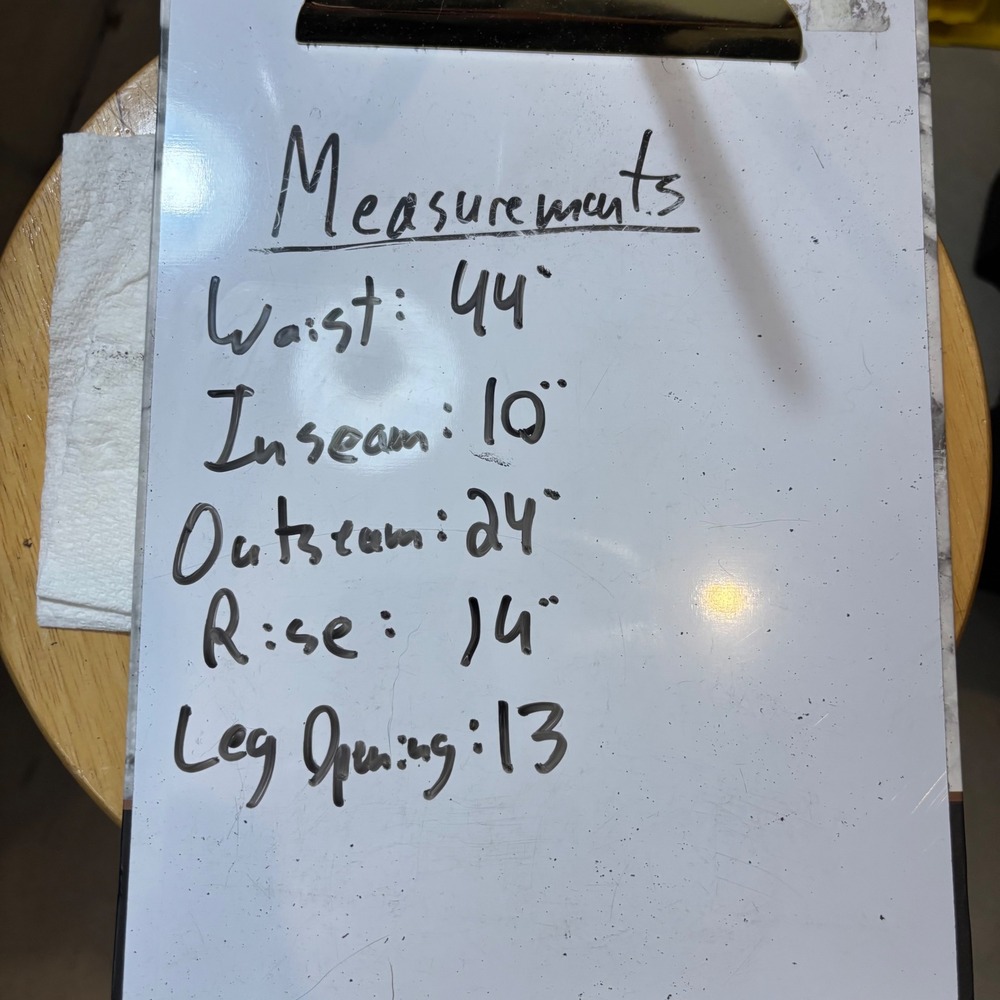 Measurements
Waist: 44"
Inseam: 10"
Outseam: 24"
Rise: 14"
Leg Opening: 13